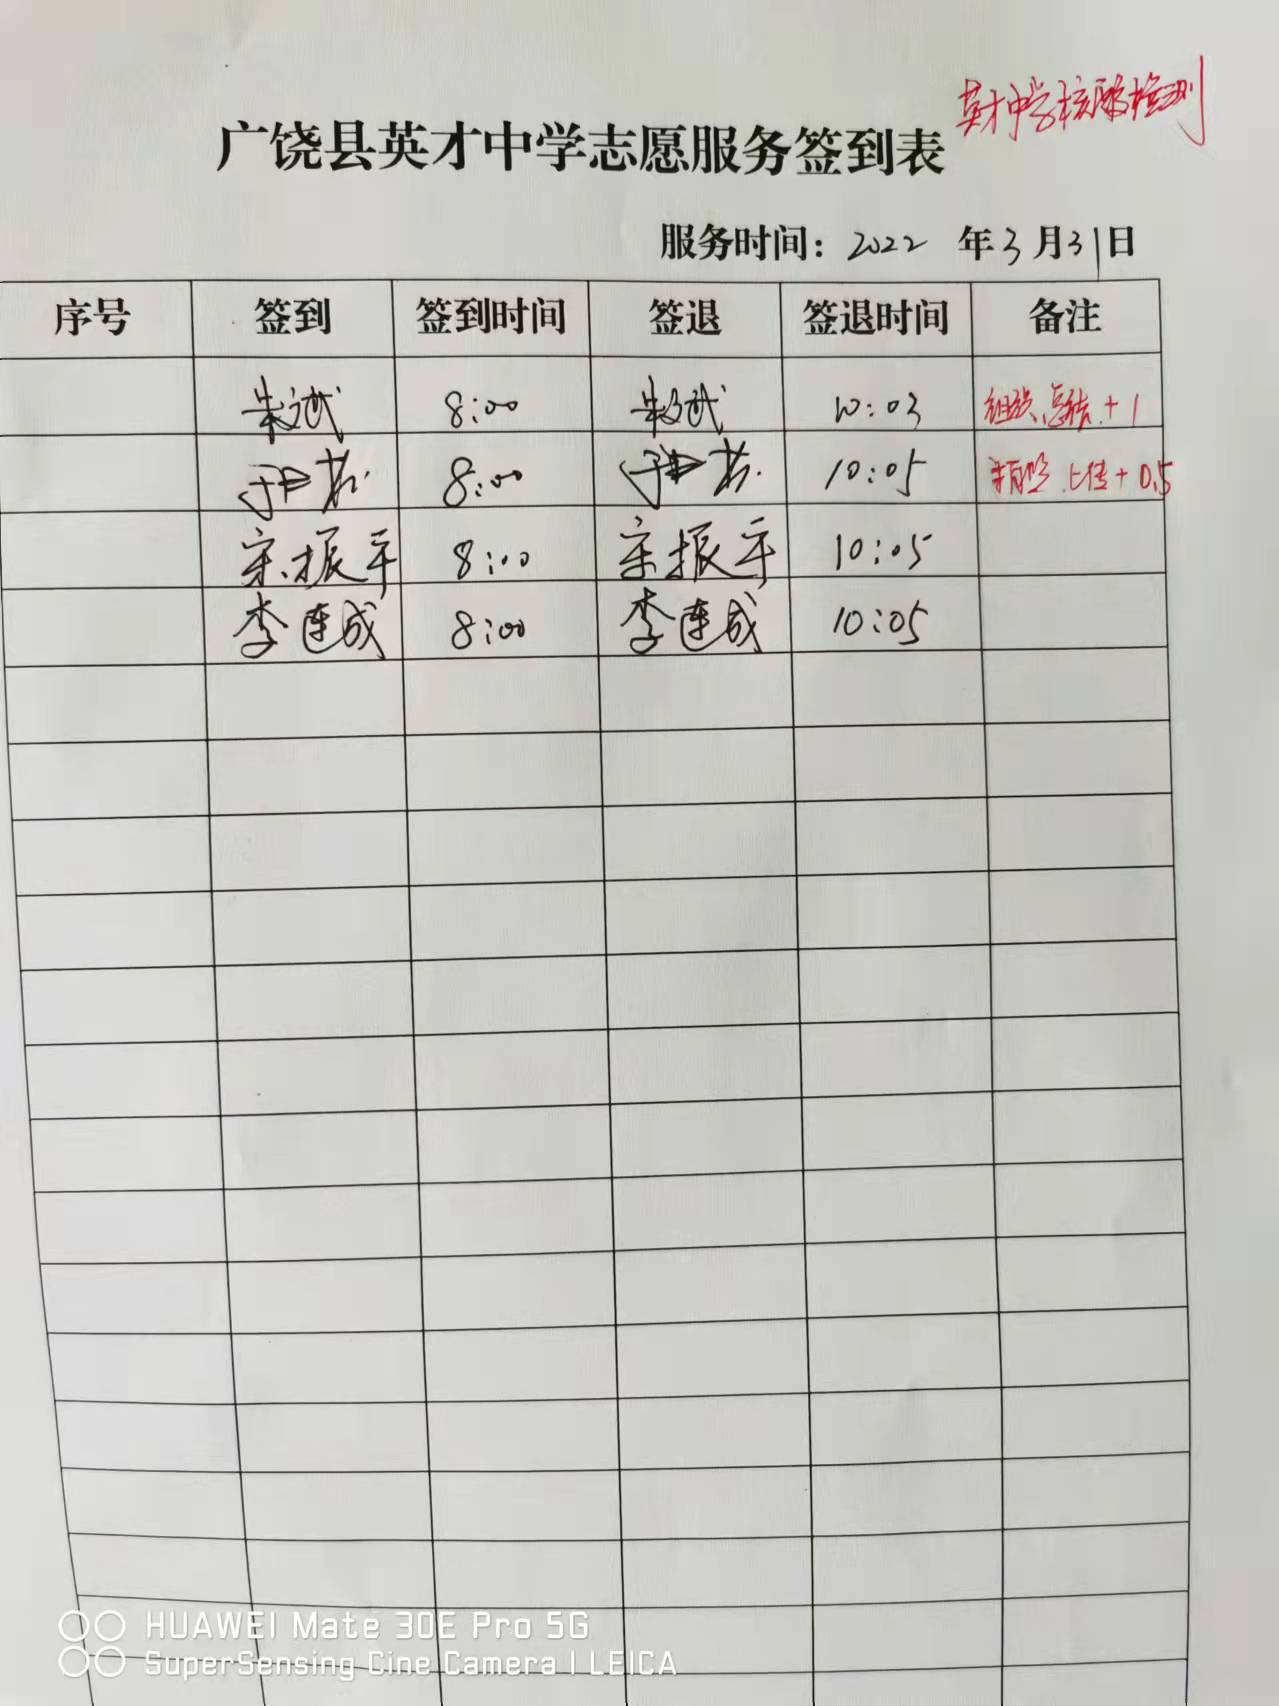 英才中学核酸检测
广饶县英才中学志愿服务签到表
服务时间：2022 年3月31日
序号 签到 签到时间 签退 签退时间 备注
朱斌 8:00 朱斌 10:03 组织、总结 +1
8:00 10:05 拍照、上传 +0.5
宋振平 8:00 宋振平 10:05
李连成 8:00 李连成 10:05
HUAWEI Mate 30E Pro 5G
SuperSensing Cine Camera | LEICA